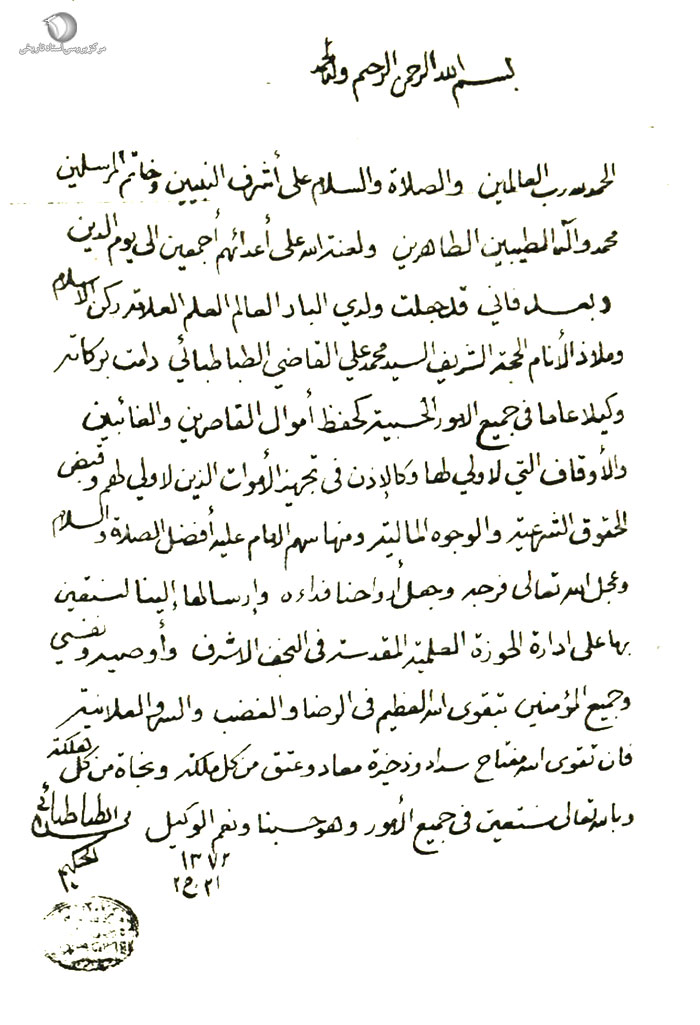 مرکز بررسی اسناد تاریخی
بسم الله الرحمن الرحيم وله الحمد
الحمد لله رب العالمين والصلاة والسلام على أشرف النبيين وخاتم المرسلين
محمد وآله الطيبين الطاهرين ولعنة الله على أعدائهم أجمعين الى يوم الدين
وبعد فاني قد جعلت ولدي البار العالم العلم العلامة ركن الاسلام
وملاذ الأنام الحجة الشريف السيد محمد علي القاضي الطباطبائي دامت بركاته
وكيلا عاما في جميع الامور الحسبية كحفظ أموال القاصرين والغائبين
والأوقاف التي لا ولي لها وكالإذن في تجهيز الأموات الذين لا ولي لهم وقبض
الحقوق الشرعية والوجوه المالية ومنها سهم الامام عليه أفضل الصلاة والسلام
وعجل الله تعالى فرجه وجعل أرواحنا فداءه وإرسالها إلينا لنستعين
بها على ادارة الحوزة العلمية المقدسة في النجف الاشرف وأوصيه ونفسي
وجميع المؤمنين بتقوى الله العظيم في الرضا والغضب والسر والعلانية
فان تقوى الله مفتاح سداد وذخيرة معاد وعتق من كل ملكة ونجاة من كل هلكة
وبالله تعالى نستعين في جميع الأمور وهو حسبنا ونعم الوكيل
الطباطبائي
الحكيم
١٣٧٢